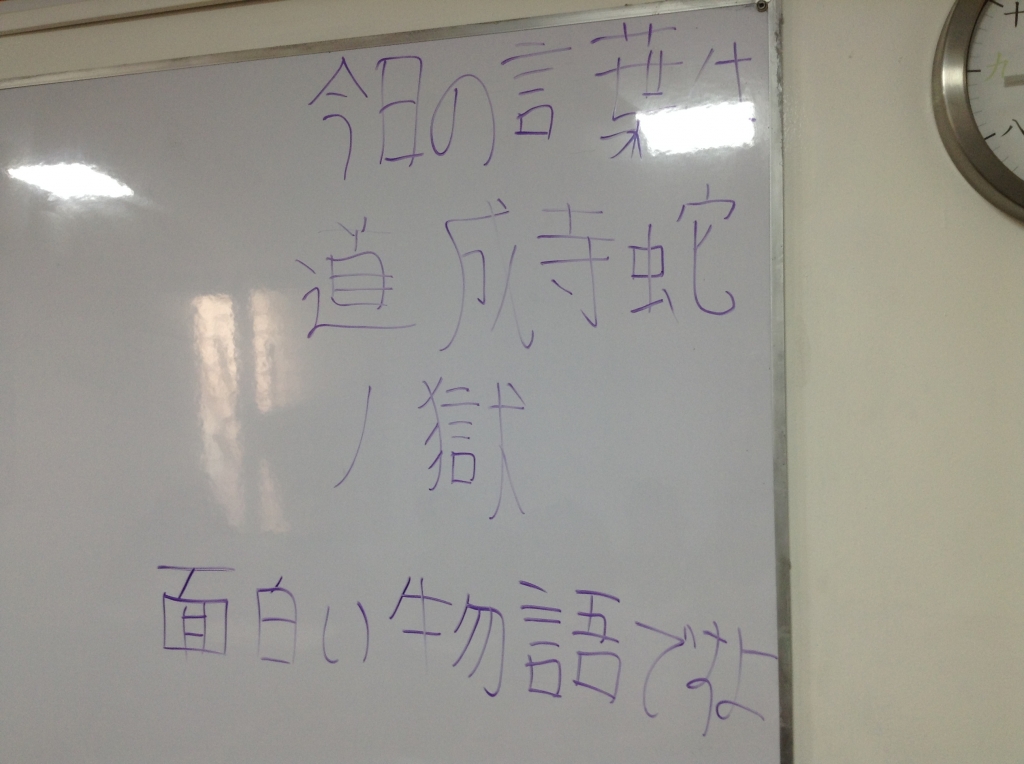 今日の言葉は
道成寺蛇
ノ獄
面白い物語でな
十
九
八